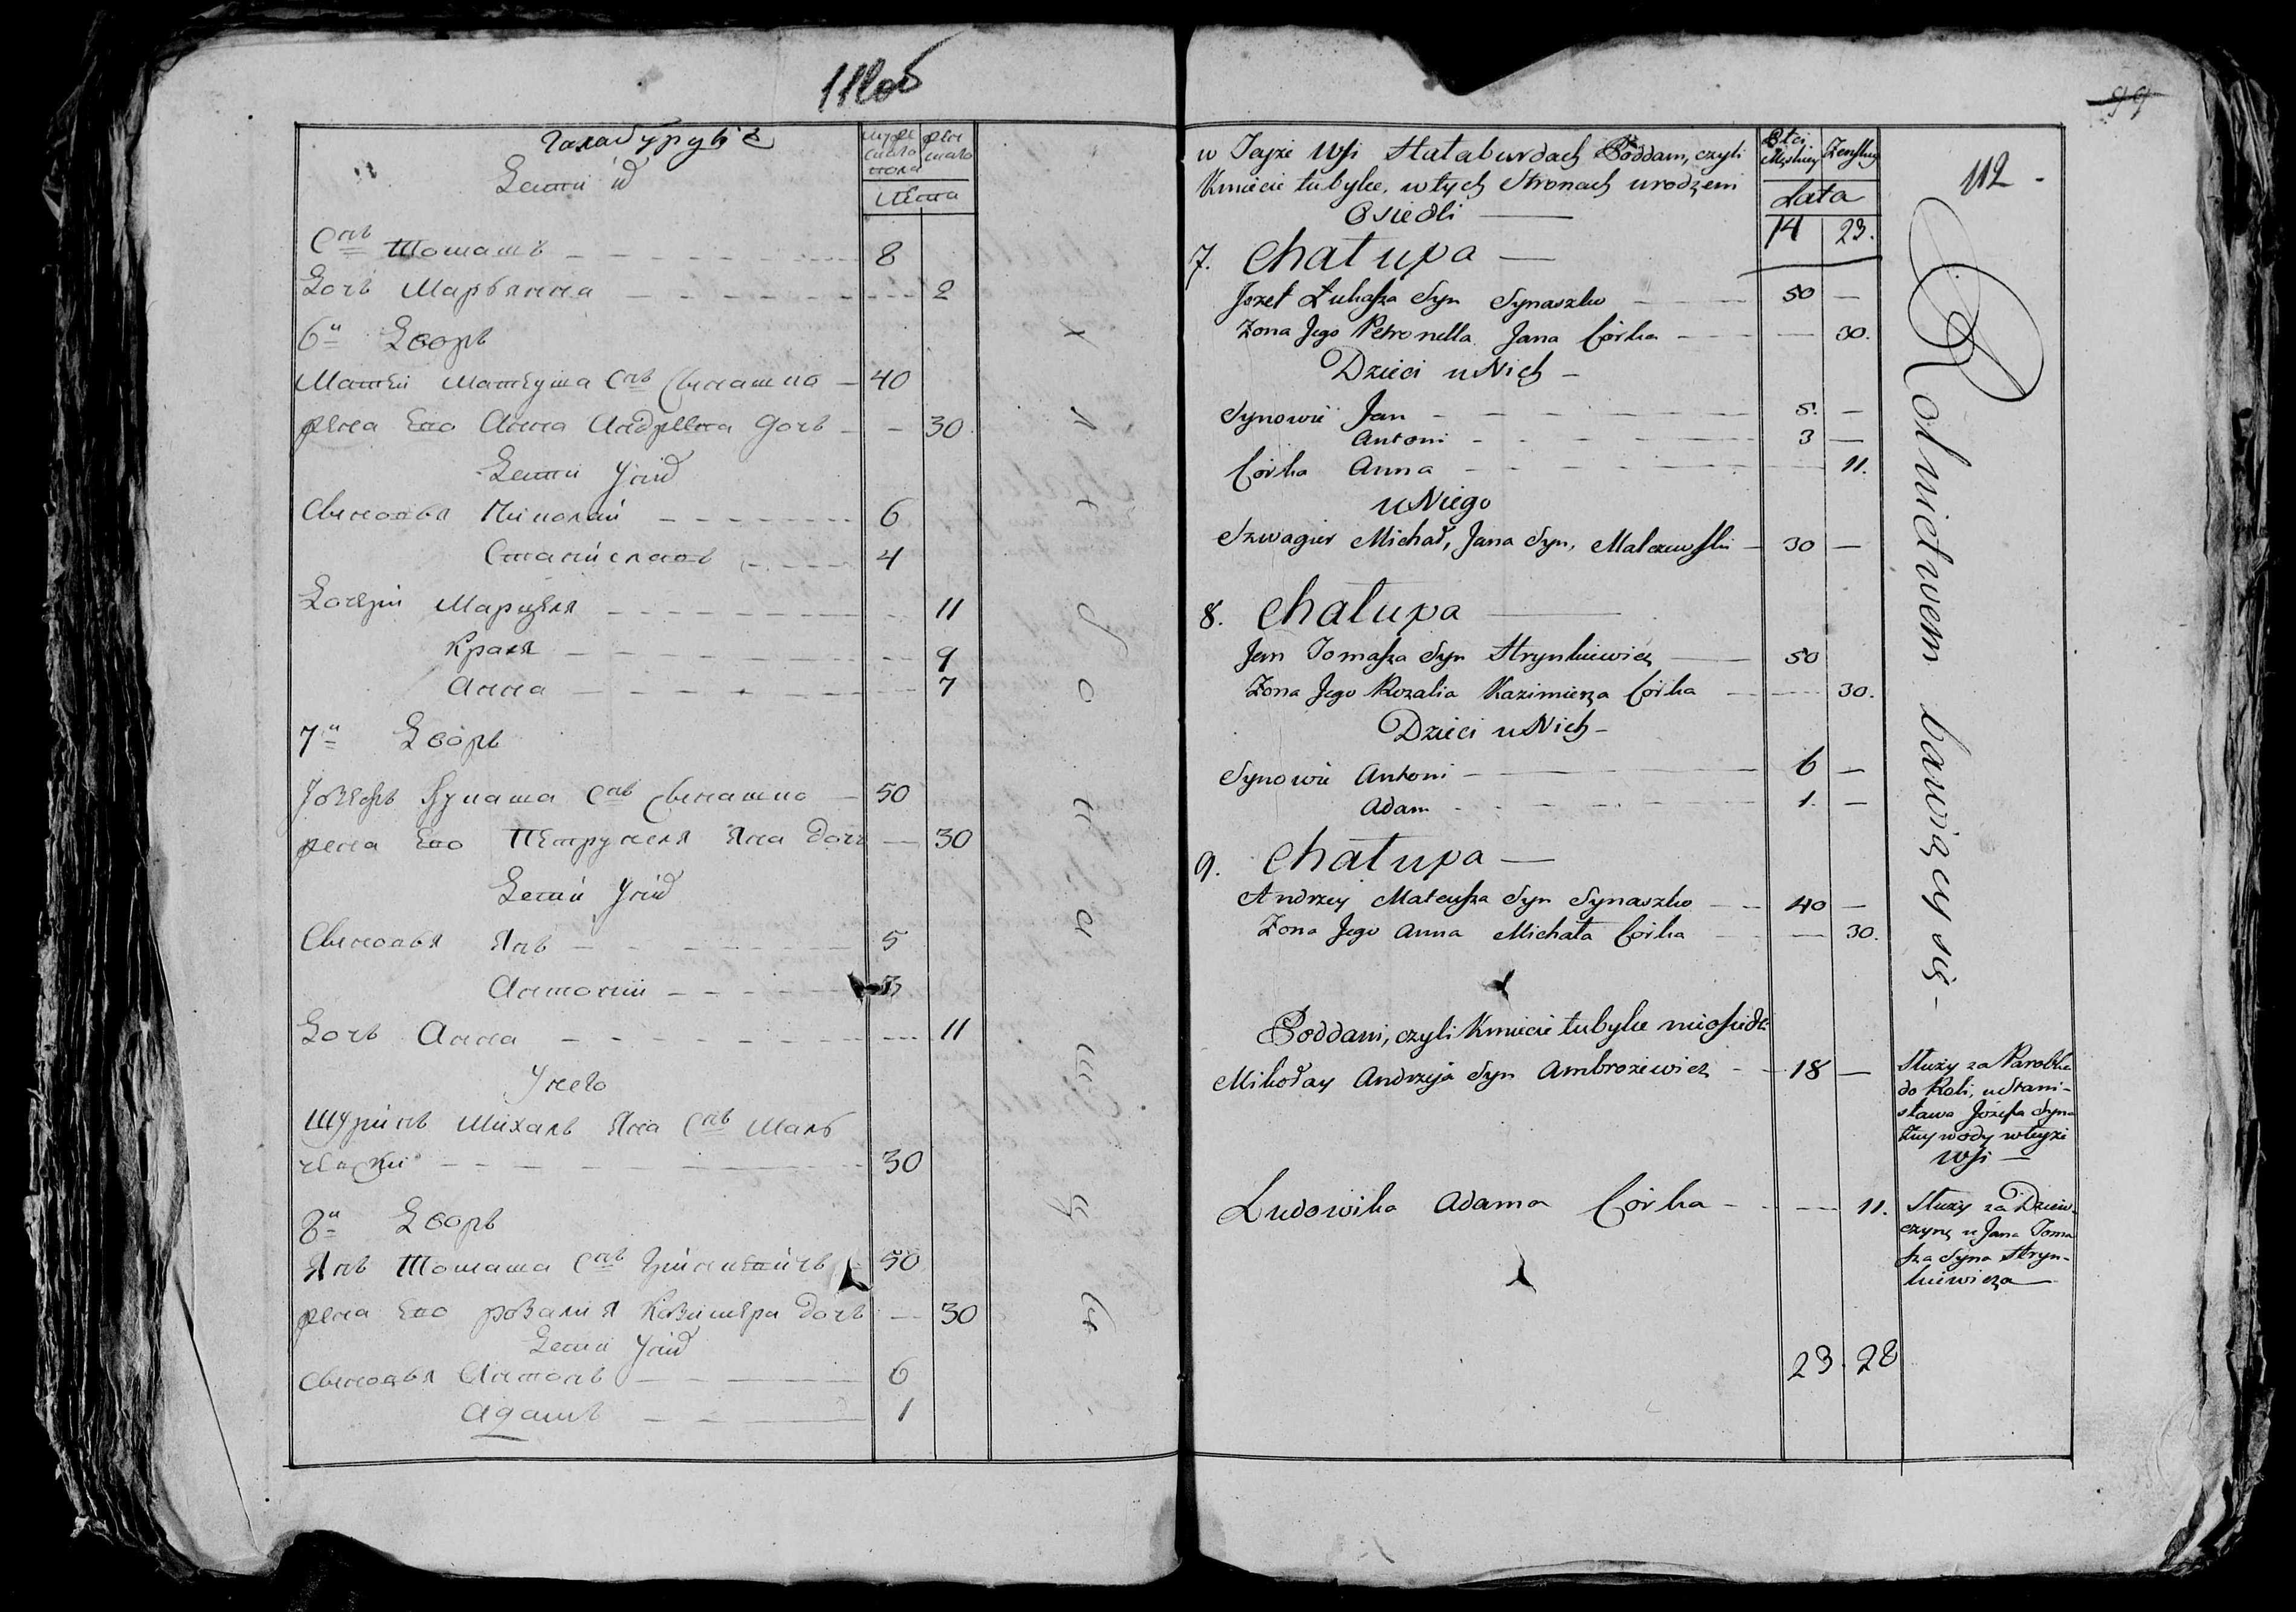 112об
Галабурудъ
мужеска пола
женскаго
Дети ид
Лета
Снъ Томашъ 8
Дочъ Марьянна 2
6й Дворъ
Матей Матеуша Снъ Сынашко 40
жена Его Анна Андрея дочъ 30
Дети Уийд
Сыновья Миколай 6
Станиславъ 4
Дочери Марцеля 11
Краля 9
Анна 7
7й Дворъ
Юзефъ Лукаша Снъ Сынашко 50
жена Его Петрунеля Яна Дочъ 30
Дети Уийд
Сыновья Янъ 5
Антоний 3
Дочъ Анна 11
У него
Шуринъ Михалъ Яна Снъ Маль
чевски 30
8й Дворъ
Янъ Томаша Снъ 50
жена Его розалия Казимера Дочъ 30
Дети Уийд
Сыновья Антонъ 6
Адамъ 1
99
112
w Teyże Wsi Hałaburdach Poddani, czyli
Kmiecie tubylce, w tych Stronach urodzeni
Osiedli
Płci
Męskiey Żeńskiey
Lata
14 23.
7. Chałupa
Jozef Łukasza Syn Synaszko 50
Zona Jego Petronella Jana Córka 30.
Dzieci u Nich
Synowie Jan 5.
Antoni 3
Córka Anna 11.
u Niego
Szwagier Michał, Jana Syn, Malczewski 30
8. Chałupa
Jan Tomasza Syn Hrynkiewicz 50
Zona Jego Rozalia Kazimierza Córka 30.
Dzieci u Nich
Synowie Antoni 6
Adam 1.
9. Chałupa
Andrzey Mateusza Syn Synaszko 40
Zona Jego Anna Michała Córka 30.
Poddani, czyli Kmiecie tubylce nieosiedli
Mikołay Andrzeja Syn Ambrożewicz 18
Służy za Parobka
do Roli, u Stani-
sława Józefa Syna
w teyże
Wsi
Ludowika Adama Córka 11.
Służy za Dziew-
czynę u Jana Toma
sza Syna Hryn-
kiewicza
23. 28
Rolnictwem bawiący się